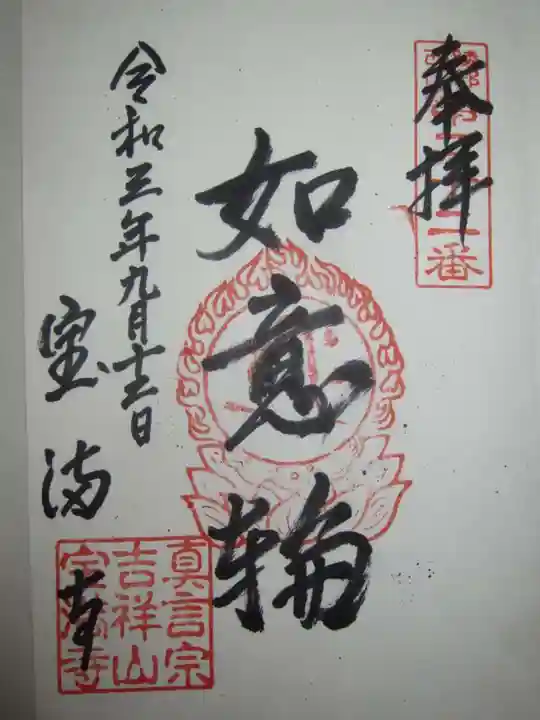 奉拝
二番
如意輪
令和三年九月十三日
宝満寺
真言宗
吉祥山
宝満寺